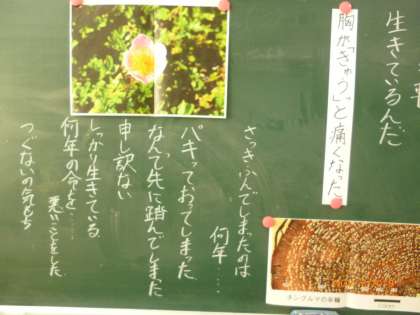 生きているんだ
胸が「ぎゅう」と痛くなった
さっきふんでしまったのは
何年……
パキっておってしまった
なんで先に踏んでしまった
申し訳ない
しっかり生きている
何年の命を…
悪いことをした
つぐないの気もち
チングルマの年輪